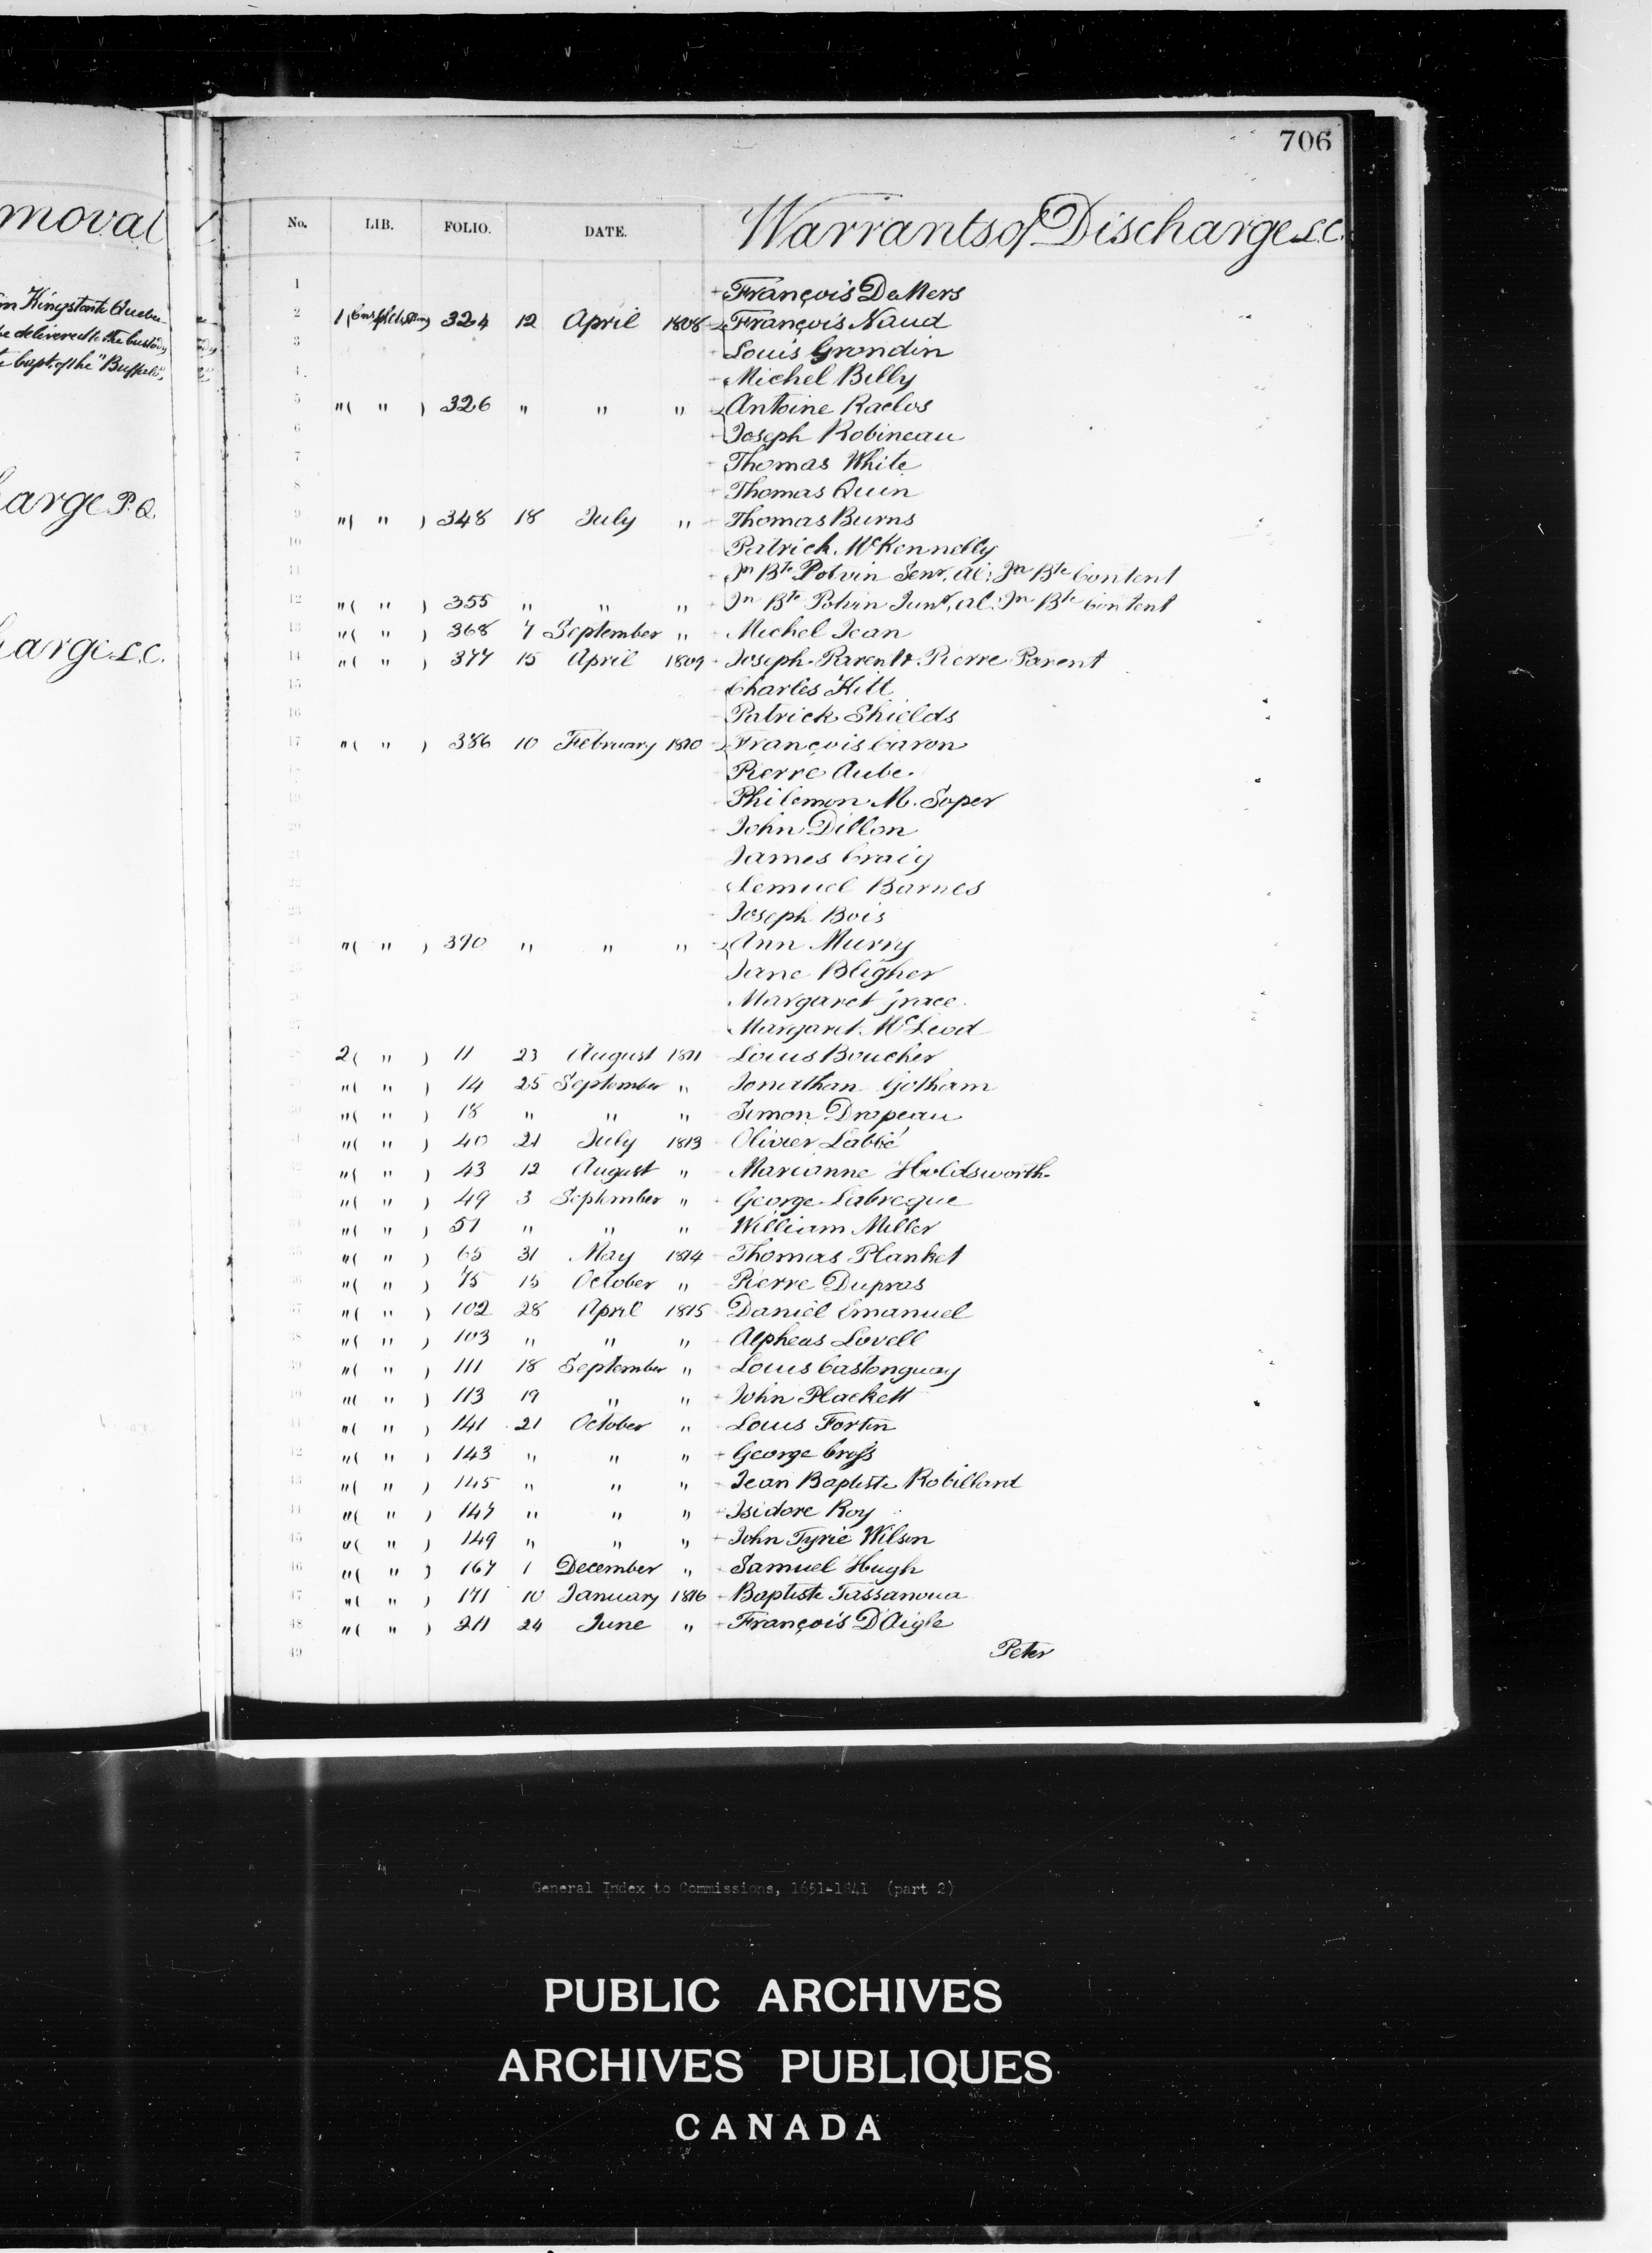 706
moval
No. LIB. FOLIO. DATE. Warrants of Discharge L.C.
in Kingston to Quebec
be delivered to the Custody
Capt. of the "Buffalo".
arge P.Q.
arge L.C.
1 François DeMers
1 ( 324 12 April 1808 François Naud
3 Louis Grondin
4 Michel Billy
5 "( " ) 326 " " " Antoine Raclos
6 Joseph Robineau
7 Thomas White
8 Thomas Quin
9 "( " ) 348 18 July " Thomas Burns
10 Patrick McKennelly
11 Jn Bte Potvin Senr, al: Jn Bte Content
12 "( " ) 355 " " " Jn Bte Potvin Junr, al. Jn Bte Content
13 "( " ) 368 7 September " Michel Jean
14 "( " ) 377 15 April 1809 Joseph Parent & Pierre Parent
15 Charles Hitt
16 Patrick Shields
17 "( " ) 386 10 February 1810 François Caron
18 Pierre Aube
19 Philemon M. Soper
20 John Dillon
21 James Craig
22 Lemuel Barnes
23 Joseph Bois
24 "( " ) 390 " " " Ann Murry
25 Jane Bligher
26 Margaret Grace
27 Margaret McLeod
28 2( " ) 11 23 August 1811 Louis Boucher
29 "( " ) 14 25 September " Jonathan Gotham
30 "( " ) 18 " " " Simon Drapeau
31 "( " ) 40 21 July 1813 Olivier Labbé
32 "( " ) 43 12 August " Marianne Holdsworth
33 "( " ) 49 3 September " George Labrecque
34 "( " ) 51 " " " William Miller
35 "( " ) 65 31 May 1814 Thomas Planket
36 "( " ) 75 15 October " Pierre Dupras
37 "( " ) 102 28 April 1815 Daniel Emanuel
38 "( " ) 103 " " " Alpheus Lovell
39 "( " ) 111 18 September " Louis Castonguay
40 "( " ) 113 19 " " John Plackett
41 "( " ) 141 21 October " Louis Fortin
42 "( " ) 143 " " " George Cross
43 "( " ) 145 " " " Jean Baptiste Robillard
44 "( " ) 147 " " " Isidore Roy
45 "( " ) 149 " " " John Tyrie Wilson
46 "( " ) 167 1 December " Samuel Hugh
47 "( " ) 171 10 January 1816 Baptiste Tassanoua
48 "( " ) 211 24 June " François D'Aigle
49 Peter
General Index to Commissions, 1651-1841 (part 2)
PUBLIC ARCHIVES
ARCHIVES PUBLIQUES
CANADA